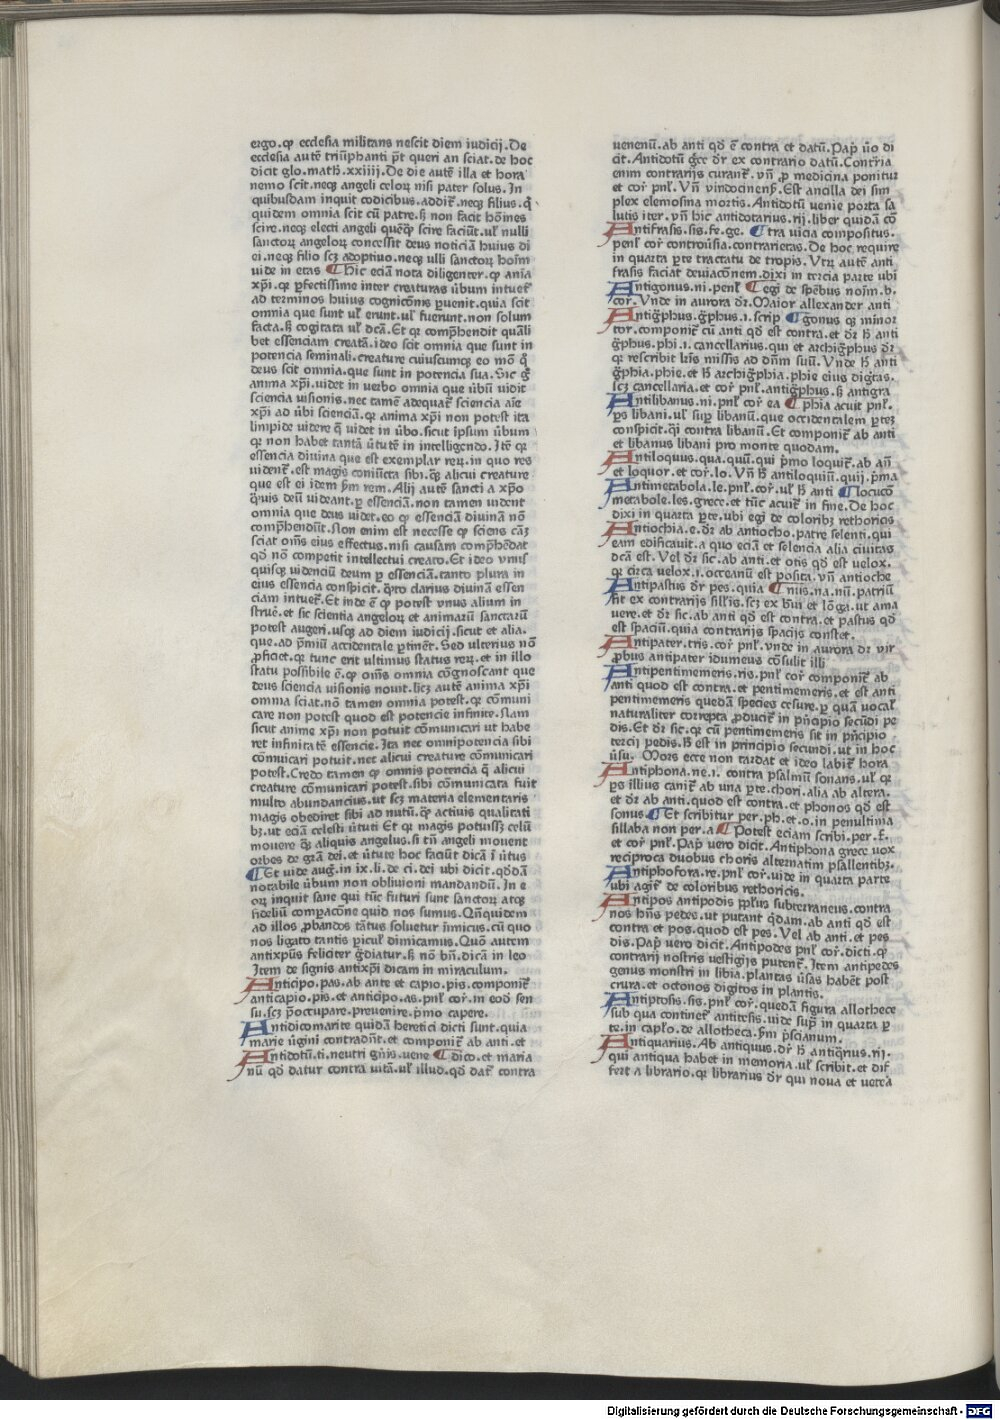 ergo. ꝙ ecclesia militans nescit diem iudicij. De
ecclesia autē triūphanti pōt queri an sciat. de hoc
dicit glo. math. xxiiij. De die autē illa et hora
nemo scit. neqꝫ angeli celoꝝ nisi pater solus. In
quibusdam inquit codicibus. addit̄. neqꝫ filius. q̄
quidem omnia scit cū patre. sꝫ non facit hōines
scire. neqꝫ electi angeli quēqꝫ scire faciūt. ul̄ nulli
sanctoꝝ angeloꝝ concessit deus noticiā huius di
ei. neqꝫ filio scꝫ adoptiuo. neqꝫ ulli sanctoꝝ hoīm
uide in etas ¶ Hic eciā nota diligenter. ꝙ aīa
xp̄i. qꝛ ꝑfectissime inter creaturas ūbum intuet̄
ad terminos huius cognicōnis ꝑuenit. quia scit
omnia que sunt ul̄ erunt. ul̄ fuerunt. non solum
facta. sꝫ cogitata ul̄ dcā. Et qꝛ comp̄hendit quāli
bet essenciam creatā. ideo scit omnia que sunt in
potencia seminali. creature cuiuscumqꝫ eo mō q̄
deus scit omnia. que sunt in potencia sua. Sic g̊
anima xp̄i. uidet in verbo omnia que ūbū uidit
sciencia uisionis. nec tamē adequat̄ sciencia aīe
xp̄i ad ūbi scienciā. qꝛ anima xp̄i non potest ita
limpide uidere q̄ uidet in ūbo. sicut ipsum ūbum
qꝛ non habet tantā ūtutē in intelligendo. Itē qꝛ
essencia diuina que est exemplar reꝝ. in quo res
uident̄. est magis coniūcta sibi. qꝫ alicui creature
que est ei idem ẜm rem. Alij autē sancti a xp̄o
q̄uis deū uideant. ꝑ essenciā. non tamen uident
omnia que deus uidet. eo ꝙ essenciā diuinā nō
comp̄hendūt. Non enim est necesse ꝙ sciens cāꝫ
sciat oms̄ eius effectus. nisi causam comp̄hēdat
qd̄ nō competit intellectui creato. Et ideo vnus
quisqꝫ uidenciū deum ꝑ essenciā. tanto plura in
eius essencia conspicit. q̊to clarius diuinā essen
ciam intuet̄. Et inde ē ꝙ potest vnus alium in
struē. et sic scientia angeloꝝ et animarū sanctarū
potest augeri. usqꝫ ad diem iudicij. sicut et alia.
que. ad p̄miū accidentale ꝑtinēt. Sed ulterius nō
ꝓficiet. qꝛ tunc erit ultimus status reꝝ. et in illo
statu possibile ē. ꝙ oms̄ omnia cōgnoscant que
deus sciencia uisionis nouit. licꝫ autē anima xp̄i
omnia sciat. nō tamen omnia potest. qꝛ cōmuni
care non potest quod est potencie infinite. Nam
sicut anime xp̄i non potuit cōmunicari ut habe
ret infinitatē essencie. Ita nec omnipotencia sibi
cōmunicari potuit. nec alicui creature cōmunicari
potest. Credo tamen ꝙ omnis potencia q̄ alicui
creature cōmunicari potest. sibi cōmunicata fuit
multo abundancius. ut scꝫ materia elementaris
magis obediret sibi ad nutū. qꝫ actiuis qualitati
bꝫ. ut eciā celesti ūtuti Et qꝛ magis potuissꝫ celū
mouere qꝫ aliquis angelus. si tn̄ angeli mouent
orbes de gr̄a dei. et ūtute hoc faciūt dicā ī ūtus
¶ Et uide aug̊. in ix. li. de ci. dei ubi dicit. qd̄dā
notabile ūbum non obliuioni mandandū. In e
oꝝ inquit sane qui tūc futuri sunt sanctoꝝ atqꝫ
fideliū compacōne quid nos sumus. Qn̄quidem
ad illos ꝓbandos tātus soluetur inimicus. cū quo
nos ligato tantis ꝑicul̄ dimicamus. Quō autem
antixpūs feliciter g̊diatur. sꝫ nō bn̄. dicā in leo
Item de signis antixpi dicam in miraculum.
Anticipo. pas. ab ante et capio. pis. componit̄
anticapio. pis. et anticipo. as. pnl̄ cor̄. in eod sen
su. scꝫ p̄occupare. preuenire. p̄mo capere.
Antidicomarite quidā heretici dicti sunt. quia
marie ūgini contradn̄t. et componit̄ ab anti. et
Antidotū. ti. neutri gn̄is. uene ¶ dico. et maria
nū qd̄ datur contra uitā. ul̄ illud. qd̄ dat̄ contra
uenenū. ab anti qd̄ ē contra et datū. Pap̄ ūo di
cit. Antidotū g̊ce dr̄ ex contrario datū. Contr̄ia
enim contrarijs curant̄. vn̄ ꝓ medicina ponitur
et cor̄ pnl̄. Vn̄ vindocinenẜ. Est ancilla dei sim
plex elemosina mortis. Antidotū uenie porta sa
lutis iter. vn̄ hic antidotarius. rij. liber quidā cō
Antifrasis. sis. fe. ge. ¶ tra uicia compositus.
penl̄ cor̄ controūsia. contrarietas. De hoc require
in quarta ꝑte tractatu de tropis. Vtrꝝ autē anti
frasis faciat deuiacōnem. dixi in tercia parte ubi
Antigonus. ni. penl̄ ¶ egi de spēbus noīm. b.
cor̄. Vnde in aurora dr̄. Maior allexander anti
Antig̊phus. g̊phus. i. scrip ¶ gonus qꝫ minor
tor. componit̄ cū anti qd̄ est contra. et dr̄ ħ anti
g̊phus. phi. i. cancellarius. qui et archig̊phus dr̄
qꝛ rescribit lr̄is missis ad dn̄m suū. Vnde ħ anti
g̊phia. phie. et ħ archig̊phia. phie eius dig̊tas.
scꝫ cancellaria. et cor̄ pnl̄. antig̊phus. sꝫ antigra
Antilibanus. ni. pnl̄ cor̄ ea ¶ phia acuit pnl̄.
ꝑs libani. ul̄ suꝑ libanū. que occidentalem ꝑteꝫ
conspicit. q̄i contra libanū. Et componit̄ ab anti
et libanus libani pro monte quodam.
Antiloquus. qua. quū. qui p̄mo loquit̄. ab an̄
et loquor. et cor̄. lo. Vn̄ ħ antiloquiū. quij. p̄ma
Antimetabola. le. pnl̄. cor̄. ul̄ ħ anti ¶ locuco
metabole. les. grece. et tūc acuit̄ in fine. De hoc
dixi in quarta ꝑte. ubi egi de coloribꝫ rethoricis
Antiochia. e. dr̄ ab antiocho. patre selenti. qui
eam edificauit. a quo eciā et selencia alia ciuitas
dcā est. Vel dr̄ sic. ab anti. et otis qd̄ est uelox.
qꝛ circa uelox. i. occeanū est posita. vn̄ antioche
Antipastus dr̄ pes. quia ¶ nus. na. nū. patriū
fit ex contrarijs sill̄is. scꝫ ex b̄ui et lōga. ut ama
uere. et dr̄ sic. ab anti qd̄ est contra. et pastus qd̄
est spaciū. quia contrarijs spacijs constet.
Antipater. tris. cor̄ pnl̄. vnde in aurora dr̄ vir
ꝓbus antipater idumeus cōsulit illi
Antipentimemeris. ris. pnl̄ cor̄ componit̄ ab
anti quod est contra. et pentimemeris. et est anti
pentimemeris quedā species cesure. ꝑ quā uocal̄
naturaliter correpta ꝓducit̄ in p̄ncipio secūdi pe
dis. Et dr̄ sic. qꝛ cū pentimemeris sit in p̄ncipio
tercij pedis. ħ est in principio secundi. ut in hoc
ūsu. Mors ecce non tardat et ideo labit̄ hora
Antiphona. ne. i. contra psalmū sonans. ul̄ qꝛ
ꝑs illius canit̄ ab una ꝑte. chori. alia ab altera.
et dr̄ ab anti. quod est contra. et phonos qd̄ est
sonus. ¶ Et scribitur per. ph. et. o. in penultima
sillaba non per. a ¶ Potest eciam scribi. per. f.
et cor̄ pnl̄. Pap̄ vero dicit. Antiphona grece uox
reciproca duobus choris alternatim psallentibꝫ.
Antiphofora. re. pnl̄ cor̄. uide in quarta parte
ubi agit̄ de coloribus rethoricis.
Antipos antipodis ppl̄us subterraneus. contra
nos hn̄s pedes. ut putant q̄dam. ab anti qd̄ est
contra et pos. quod est pes. Vel ab anti. et pes
dis. Pap̄ vero dicit. Antipodes pnl̄ cor̄. dicti. ꝙ
contrarij nostris uestigijs putent̄. Item antipedes
genus monstri in libia. plantas ūsas habēt post
crura. et octonos digitos in plantis.
Antiptosis. sis. pnl̄ cor̄. quedā figura allothece
sub qua continet̄ antitesis. uide sup̄ in quarta ꝑ
te. in capl̄o. de allotheca. ẜm p̄scianum.
Antiquarius. Ab antiquus. dr̄ ħ antiq̄rius. rij.
qui antiqua habet in memoria. ul̄ scribit. et dif
fert a librario. qꝛ librarius dr̄ qui noua et veterā
Digitalisierung gefördert durch die Deutsche Forschungsgemeinschaft - DFG